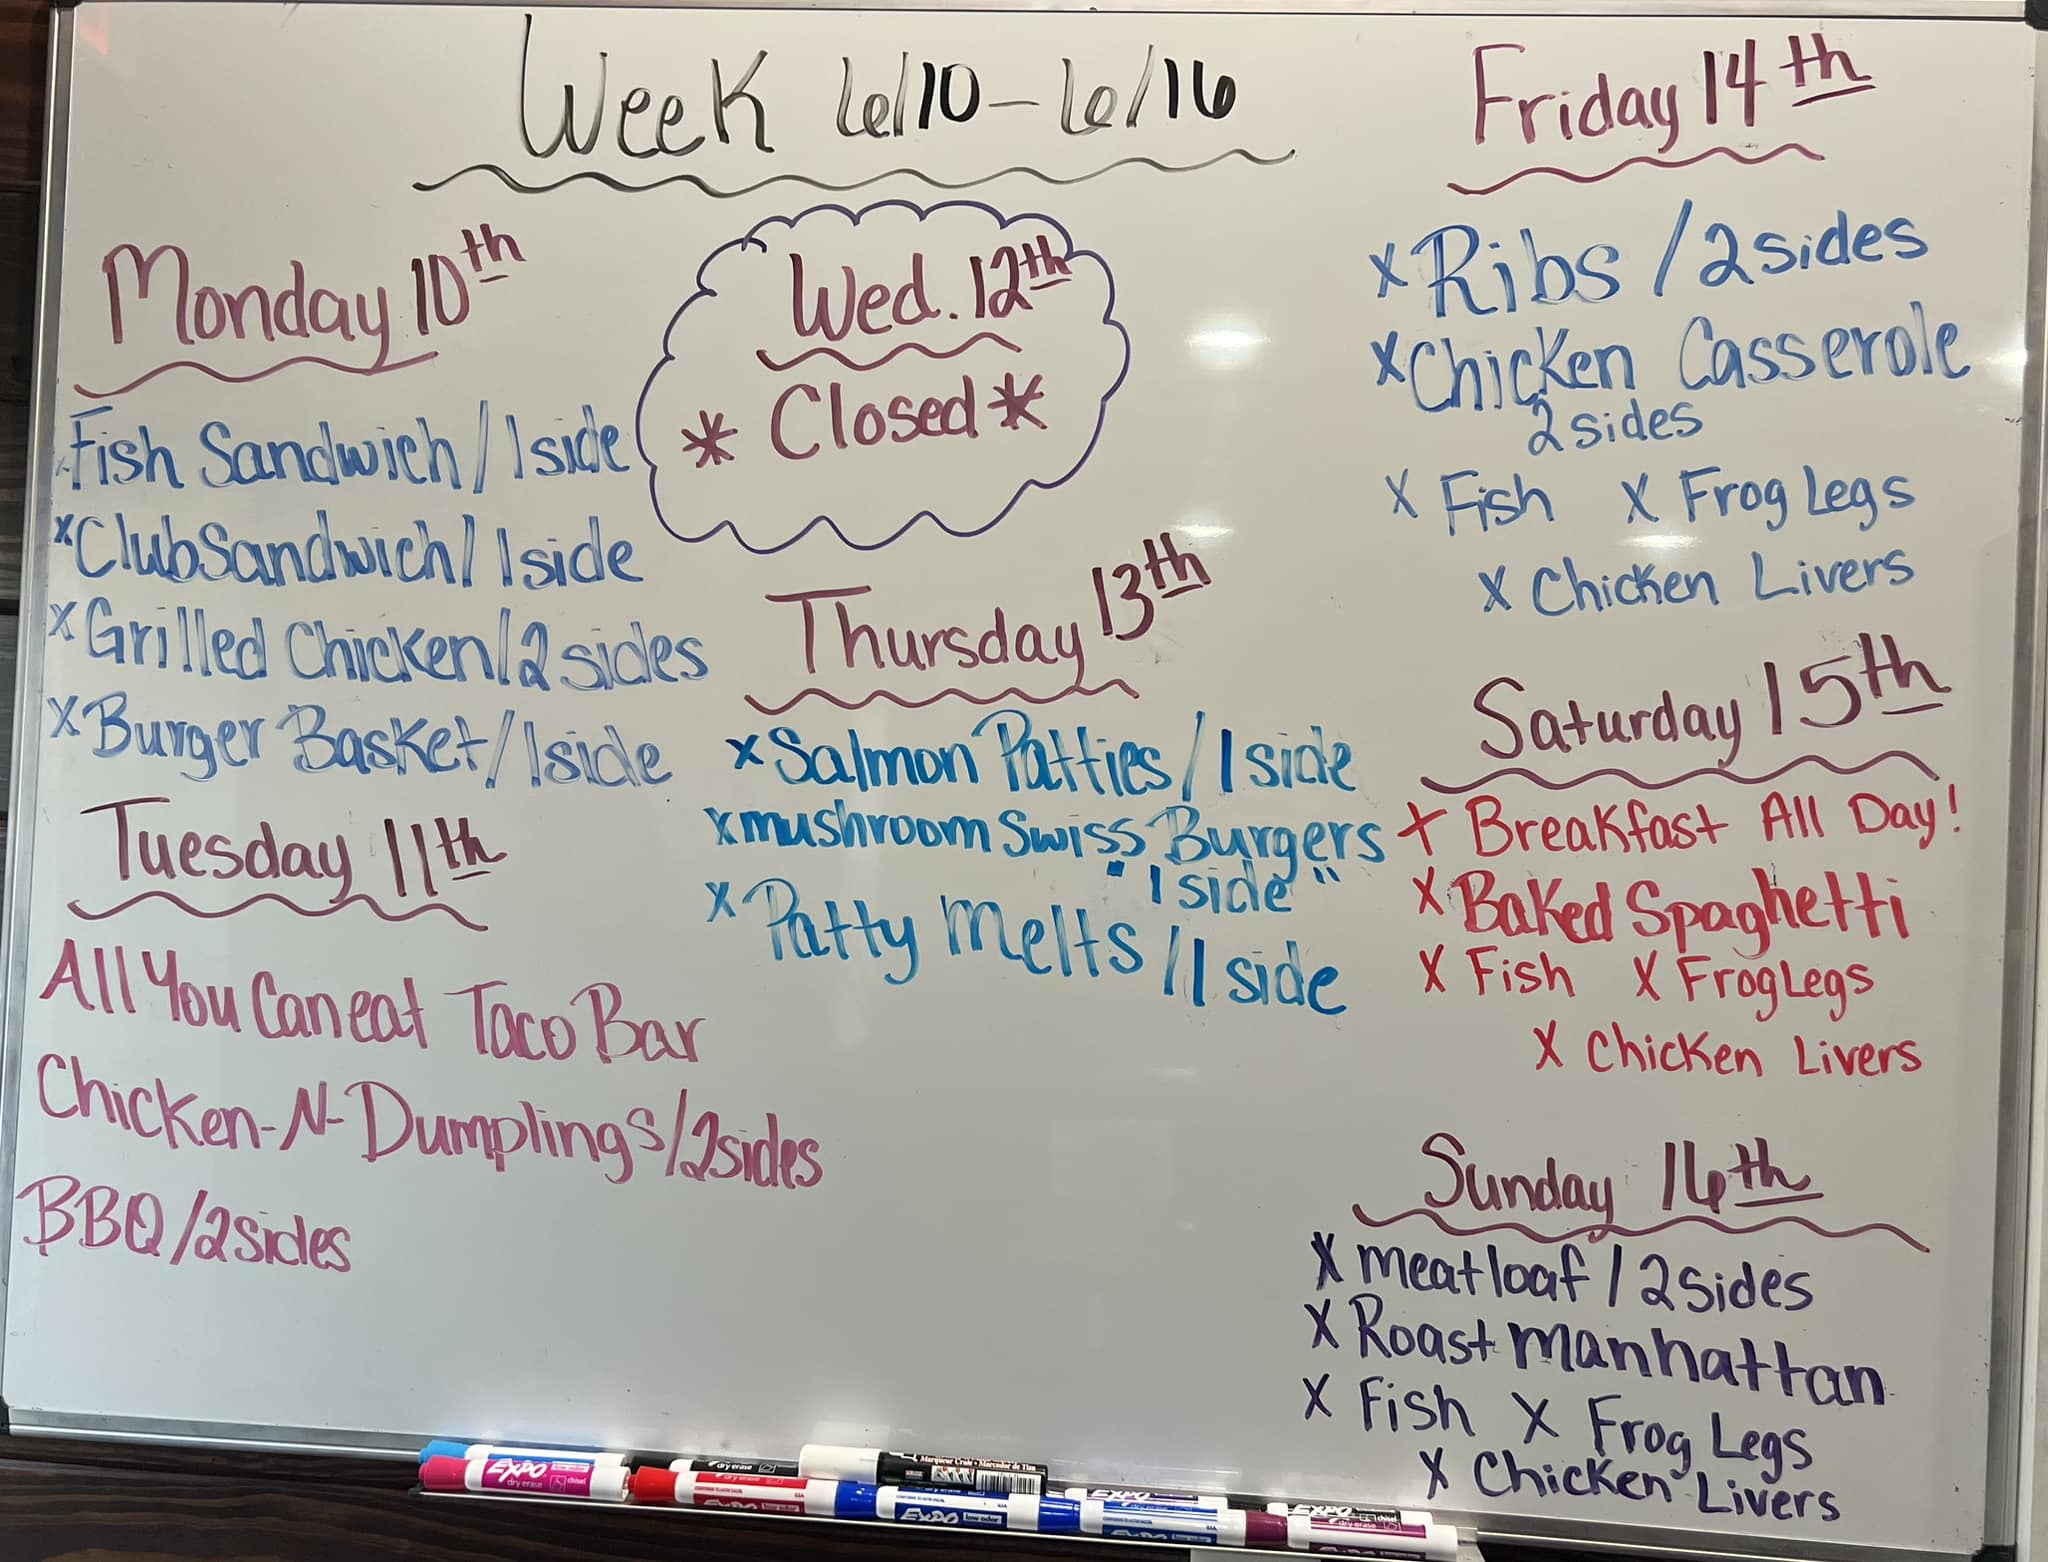 Week 6/10 - 6/16
Monday 10th
x Fish Sandwich / 1 side
x Club Sandwich / 1 side
x Grilled Chicken / 2 sides
x Burger Basket / 1 side
Tuesday 11th
All You Can eat Taco Bar
Chicken-N-Dumplings / 2 sides
BBQ / 2 sides
Wed. 12th
* Closed *
Thursday 13th
x Salmon Patties / 1 side
x mushroom Swiss Burgers
"1 side"
x Patty Melts / 1 side
Friday 14th
x Ribs / 2 sides
x Chicken Casserole
2 sides
x Fish x Frog Legs
x Chicken Livers
Saturday 15th
x Breakfast All Day!
x Baked Spaghetti
x Fish x Frog Legs
x Chicken Livers
Sunday 16th
x meatloaf / 2 sides
x Roast manhattan
x Fish x Frog Legs
x Chicken Livers
EXPO
dry erase
chisel
dry erase
EXPO low odor
EXPO
EXPO
chisel
dry erase